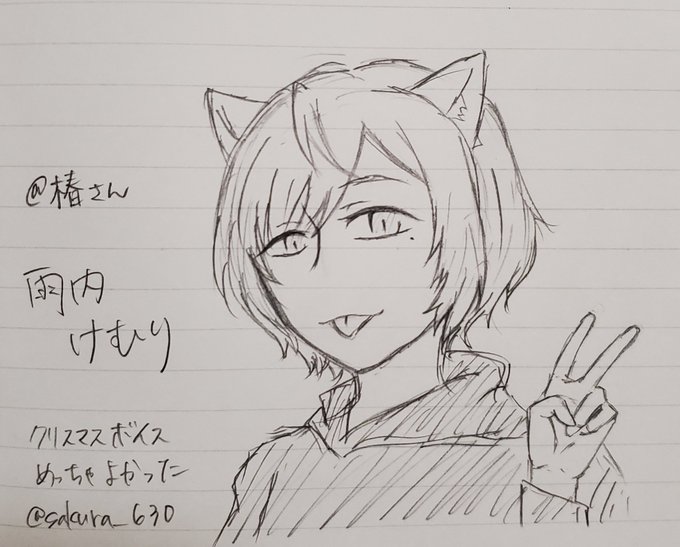 @椿さん
雨内
けむり
クリスマスボイス
めっちゃよかった
@sakura_630